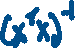 (x^T x)^{-1}